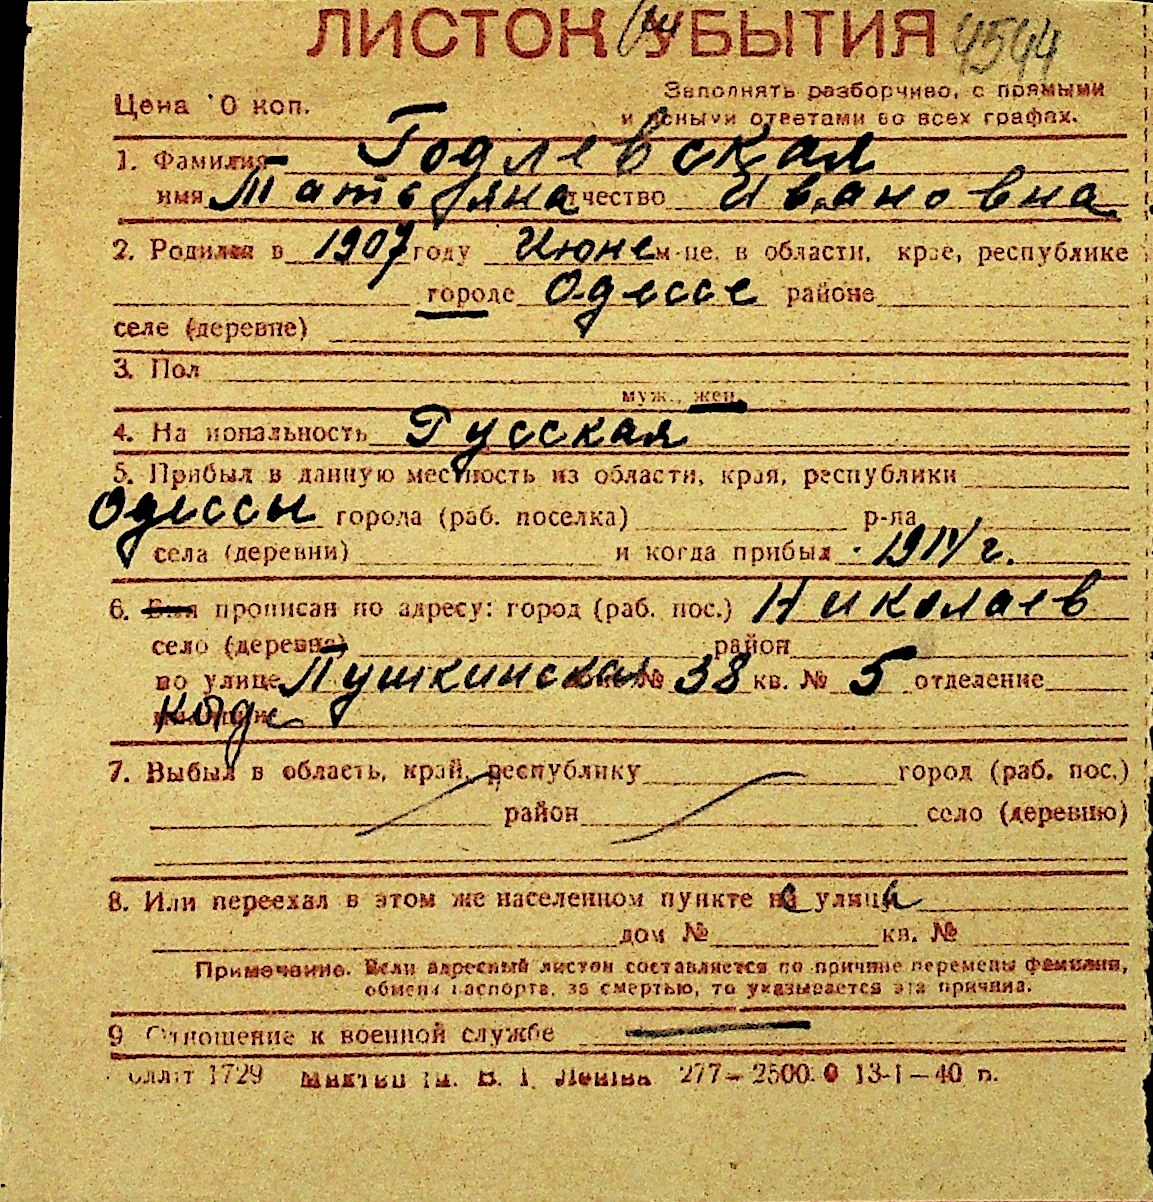 ЛИСТОК УБЫТИЯ 4544
Цена 10 коп.
Заполнять разборчиво, с прямыми
и ясными ответами во всех графах.
1. Фамилия Годлевская
имя Татьяна отчество Ивановна
2. Родился в 1907 году Июне м-це, в области, крае, республике
городе Одессе районе
селе (деревне)
3. Пол
муж., жен.
4. Национальность Русская
5. Прибыл в данную местность из области, края, республики
Одессы города (раб. поселка) р-на
села (деревни) и когда прибыл 1914 г.
6. Был прописан по адресу: город (раб. пос.) Николаев
село (деревня) район
по улице Пушкинская № 38 кв. № 5 отделение
милиции
7. Выбыл в область, край, республику город (раб. пос.)
район село (деревню)
8. Или переехал в этом же населенном пункте на улицу
дом № кв. №
Примечание. Если адресный листок составляется по причине перемены фамилии,
обмена паспорта, за смертью, то указывается эта причина.
9 Отношение к военной службе
1729 В. І. Леніна 277—2500. 13-I—40 р.